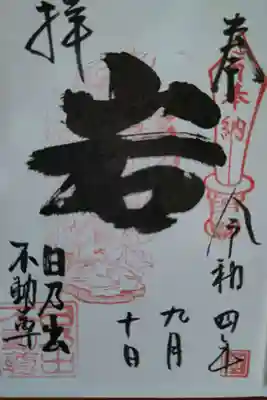 奉拝
奉納
令和四年
九月
十日
岩
日乃出
不動尊